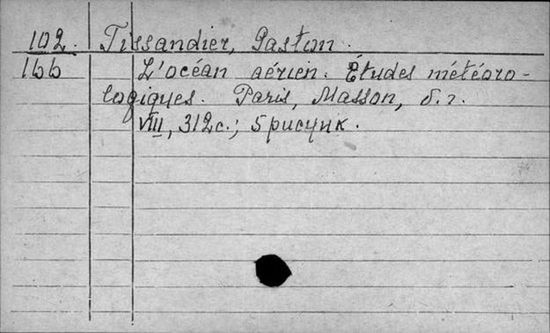 102. Tissandier, Gaston.
166 L'océan aérien. Études météoro-
logiques. Paris, Masson, б.г.
VIII, 312с.; 5 рисунк.